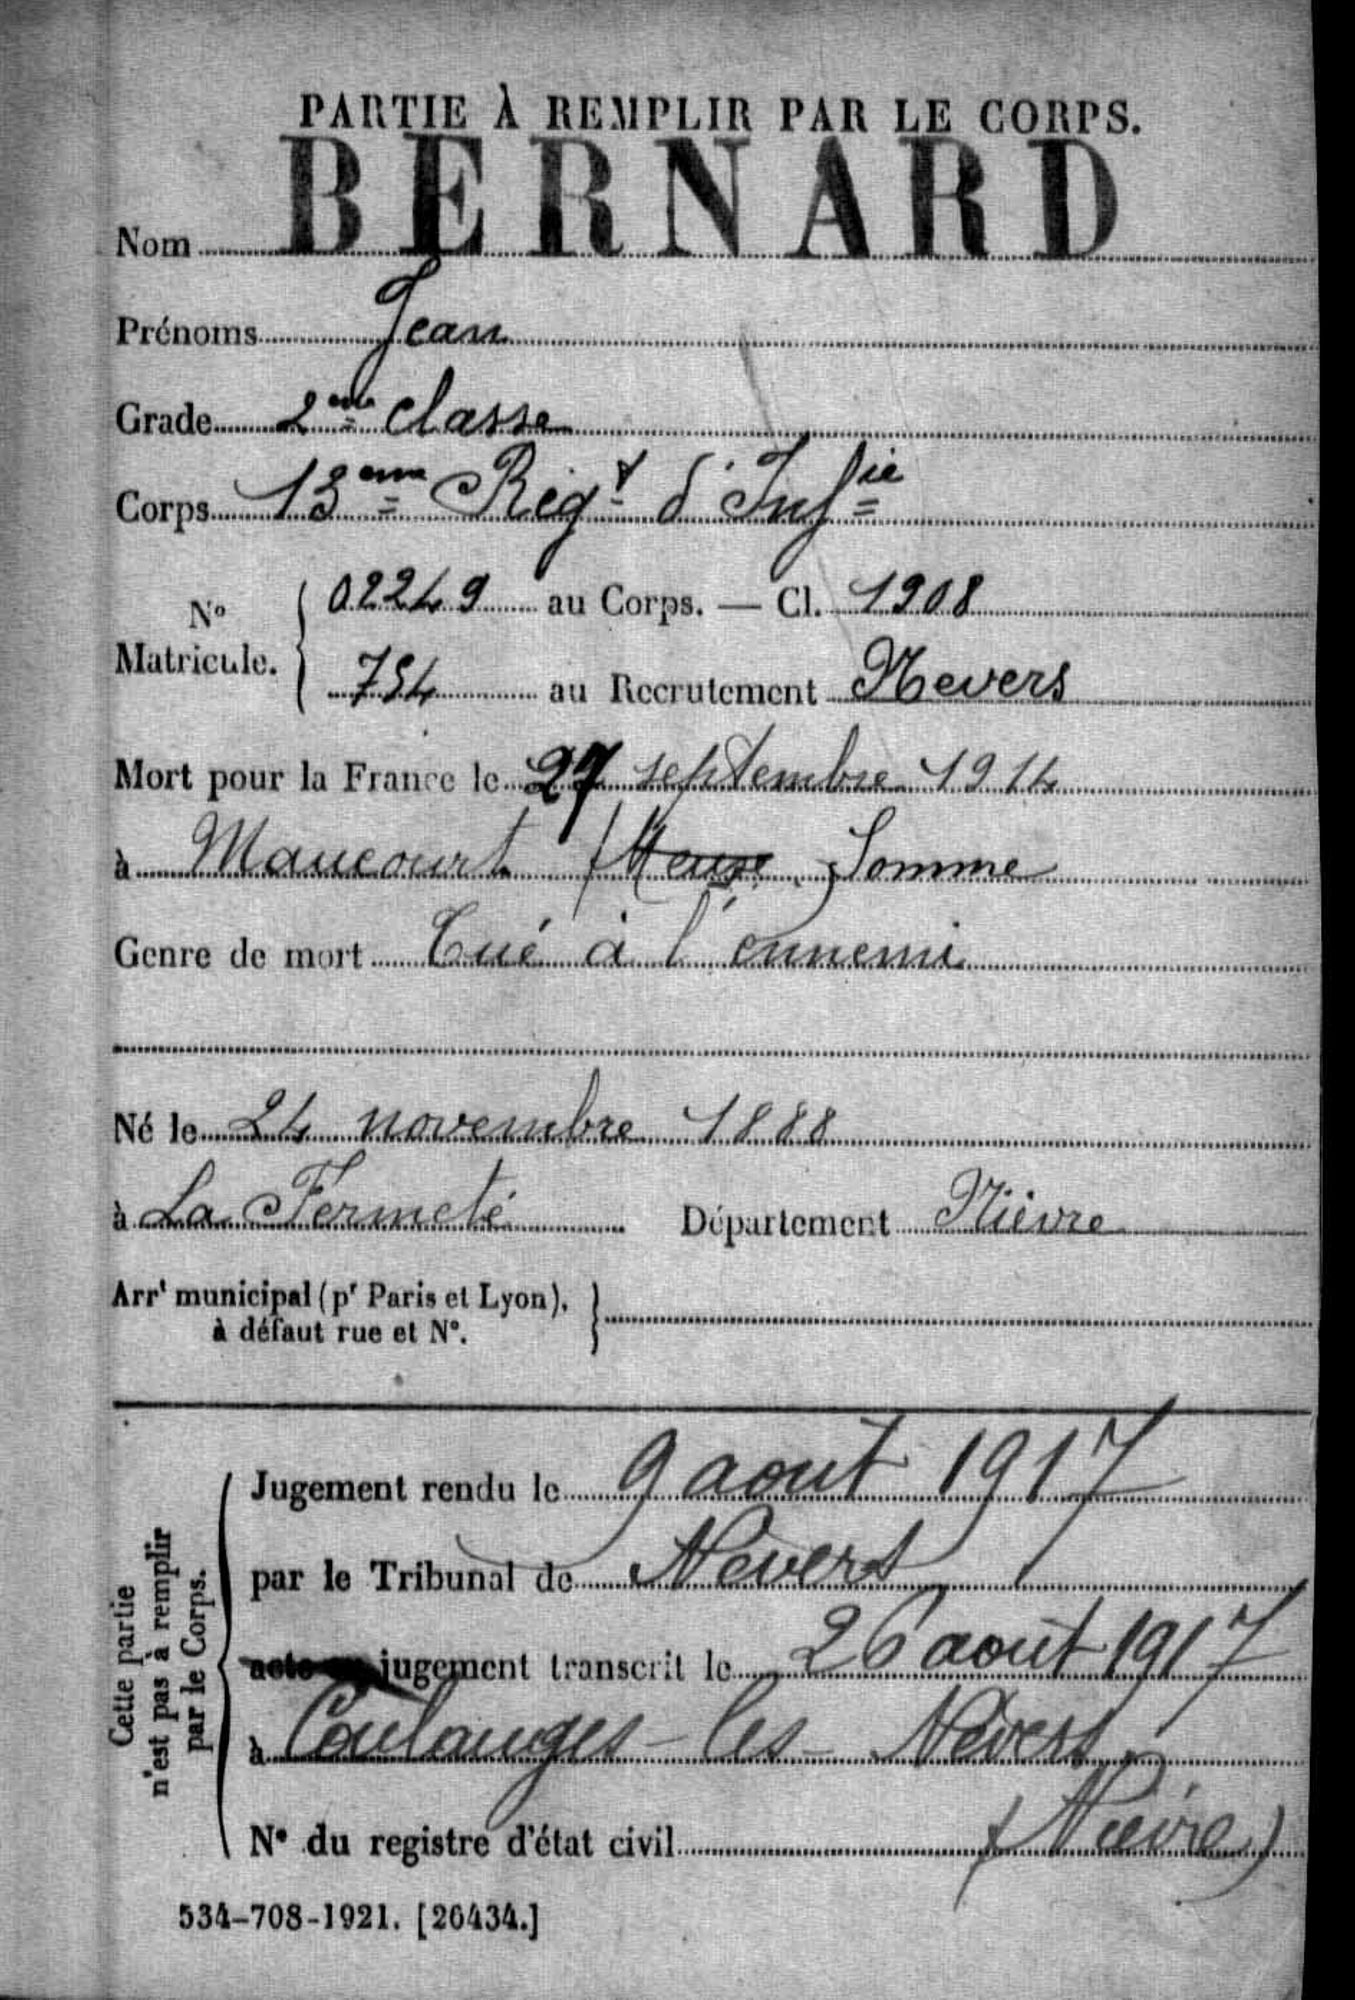 PARTIE À REMPLIR PAR LE CORPS.
Nom BERNARD
Prénoms Jean
Grade 2ème classe
Corps 13ème Régt d'Infie
No Matricule. 02249 au Corps. — Cl. 1908
754 au Recrutement Nevers
Mort pour la France le 27 septembre 1914
à Maucourt (Meuse) Somme
Genre de mort Tué à l'ennemi
Né le 24 novembre 1888
à La Fermeté Département Nièvre
Arrt municipal (pr Paris et Lyon),
à défaut rue et N°.
Cette partie
n'est pas à remplir
par le Corps.
Jugement rendu le 9 aout 1917
par le Tribunal de Nevers
acte jugement transcrit le 26 août 1917
à Coulanges-les-Nevers
N° du registre d'état civil (Nièvre)
534-708-1921. [26434.]